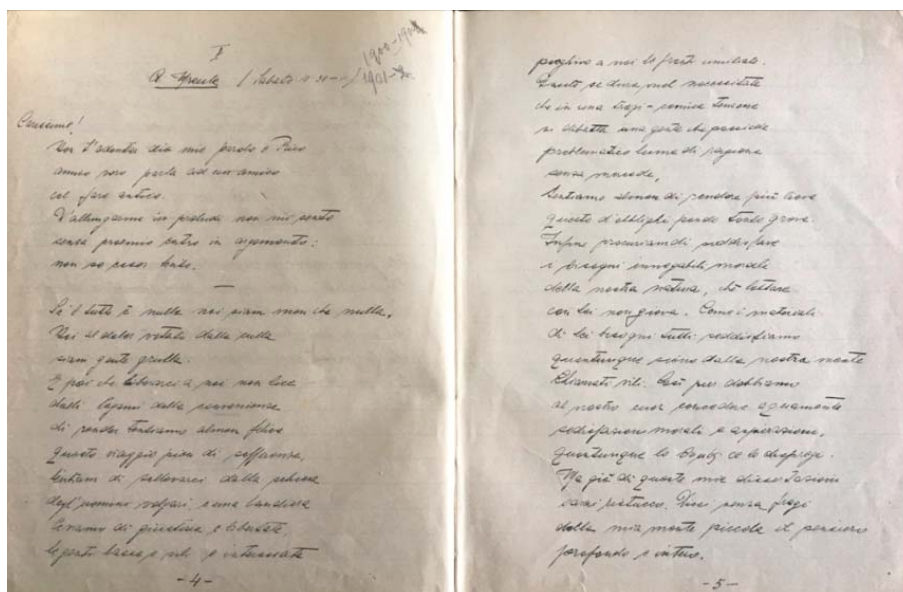 I
1900-1901
1901-
Carissimo!
amico vero parla ad un amico
col fare antico.
D'allungarmi in preludi non mi sento
senza proemio entro in argomento:
non so esser lento.
—
Se 'l tutto è nulla noi siam men che nulla.
Noi al dolor votati dalla culla
siam gente grulla.
E poi che liberarci a noi non lice
dalli legami della
di render tentiamo almen felice
questo viaggio pien di sofferenza,
tentiam di sollevarci dalla schiera
degl'uomini volgari e una bandiera
leviamo di giustizia e libertate,
le genti basse e vili e interessate
- 4 -
pieghino a noi le fronti umiliate.
che in una tragi-comica tenzone
si dibatta una gente che possiede
problematico lume di ragione
senza mercede,
tentiamo almen di render più lieve
questo d'obblighi pondo tanto greve.
Infine procuriam di soddisfare
i bisogni innegabili morali
della nostra natura, chè lottare
con lei non giova. Come i materiali
di lei bisogni tutti soddisfiamo
quantunque sieno dalla nostra mente
chiamati vili. Così pur dobbiamo
al nostro cuor concedere egualmente
soddisfazioni morali e aspirazioni,
quantunque lo
Ma già di queste mie dissertazioni
sarai ristucco. Dissi senza fregi
della mia mente piccola il pensiero
profondo e intero.
- 5 -